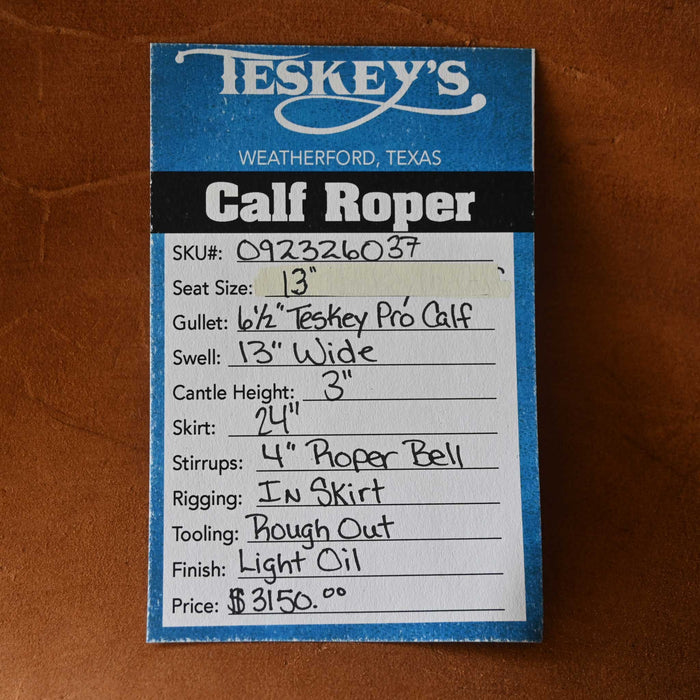 TESKEY'S
WEATHERFORD, TEXAS
Calf Roper
SKU#: 092326037
Seat Size: 13"
Gullet: 6½" Teskey Pro Calf
Swell: 13" Wide
Cantle Height: 3"
Skirt: 24"
Stirrups: 4" Roper Bell
Rigging: In Skirt
Tooling: Rough Out
Finish: Light Oil
Price: $3150.00